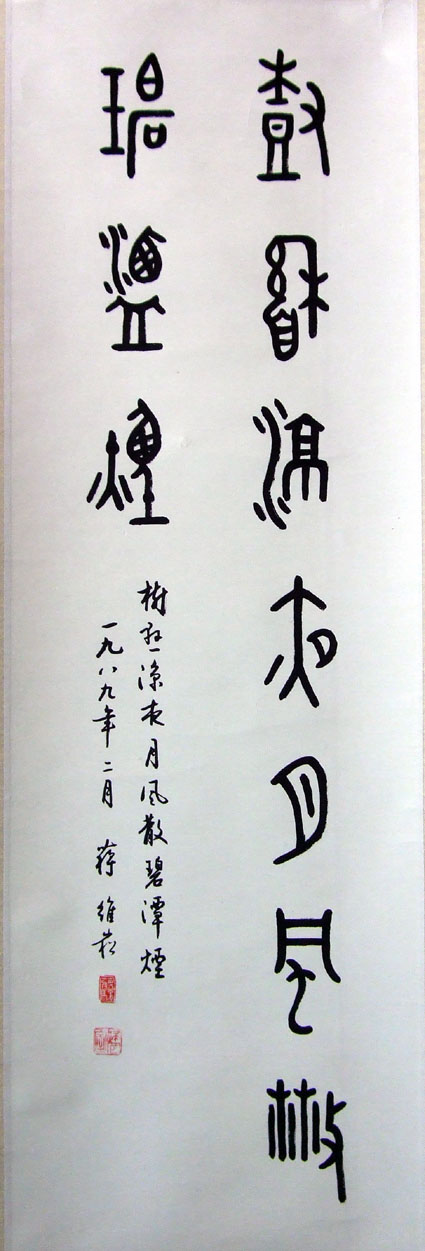 樹縣涼夜月風散
碧潭煙
樹懸涼夜月風散碧潭煙
一九八九年二月 蔣維崧